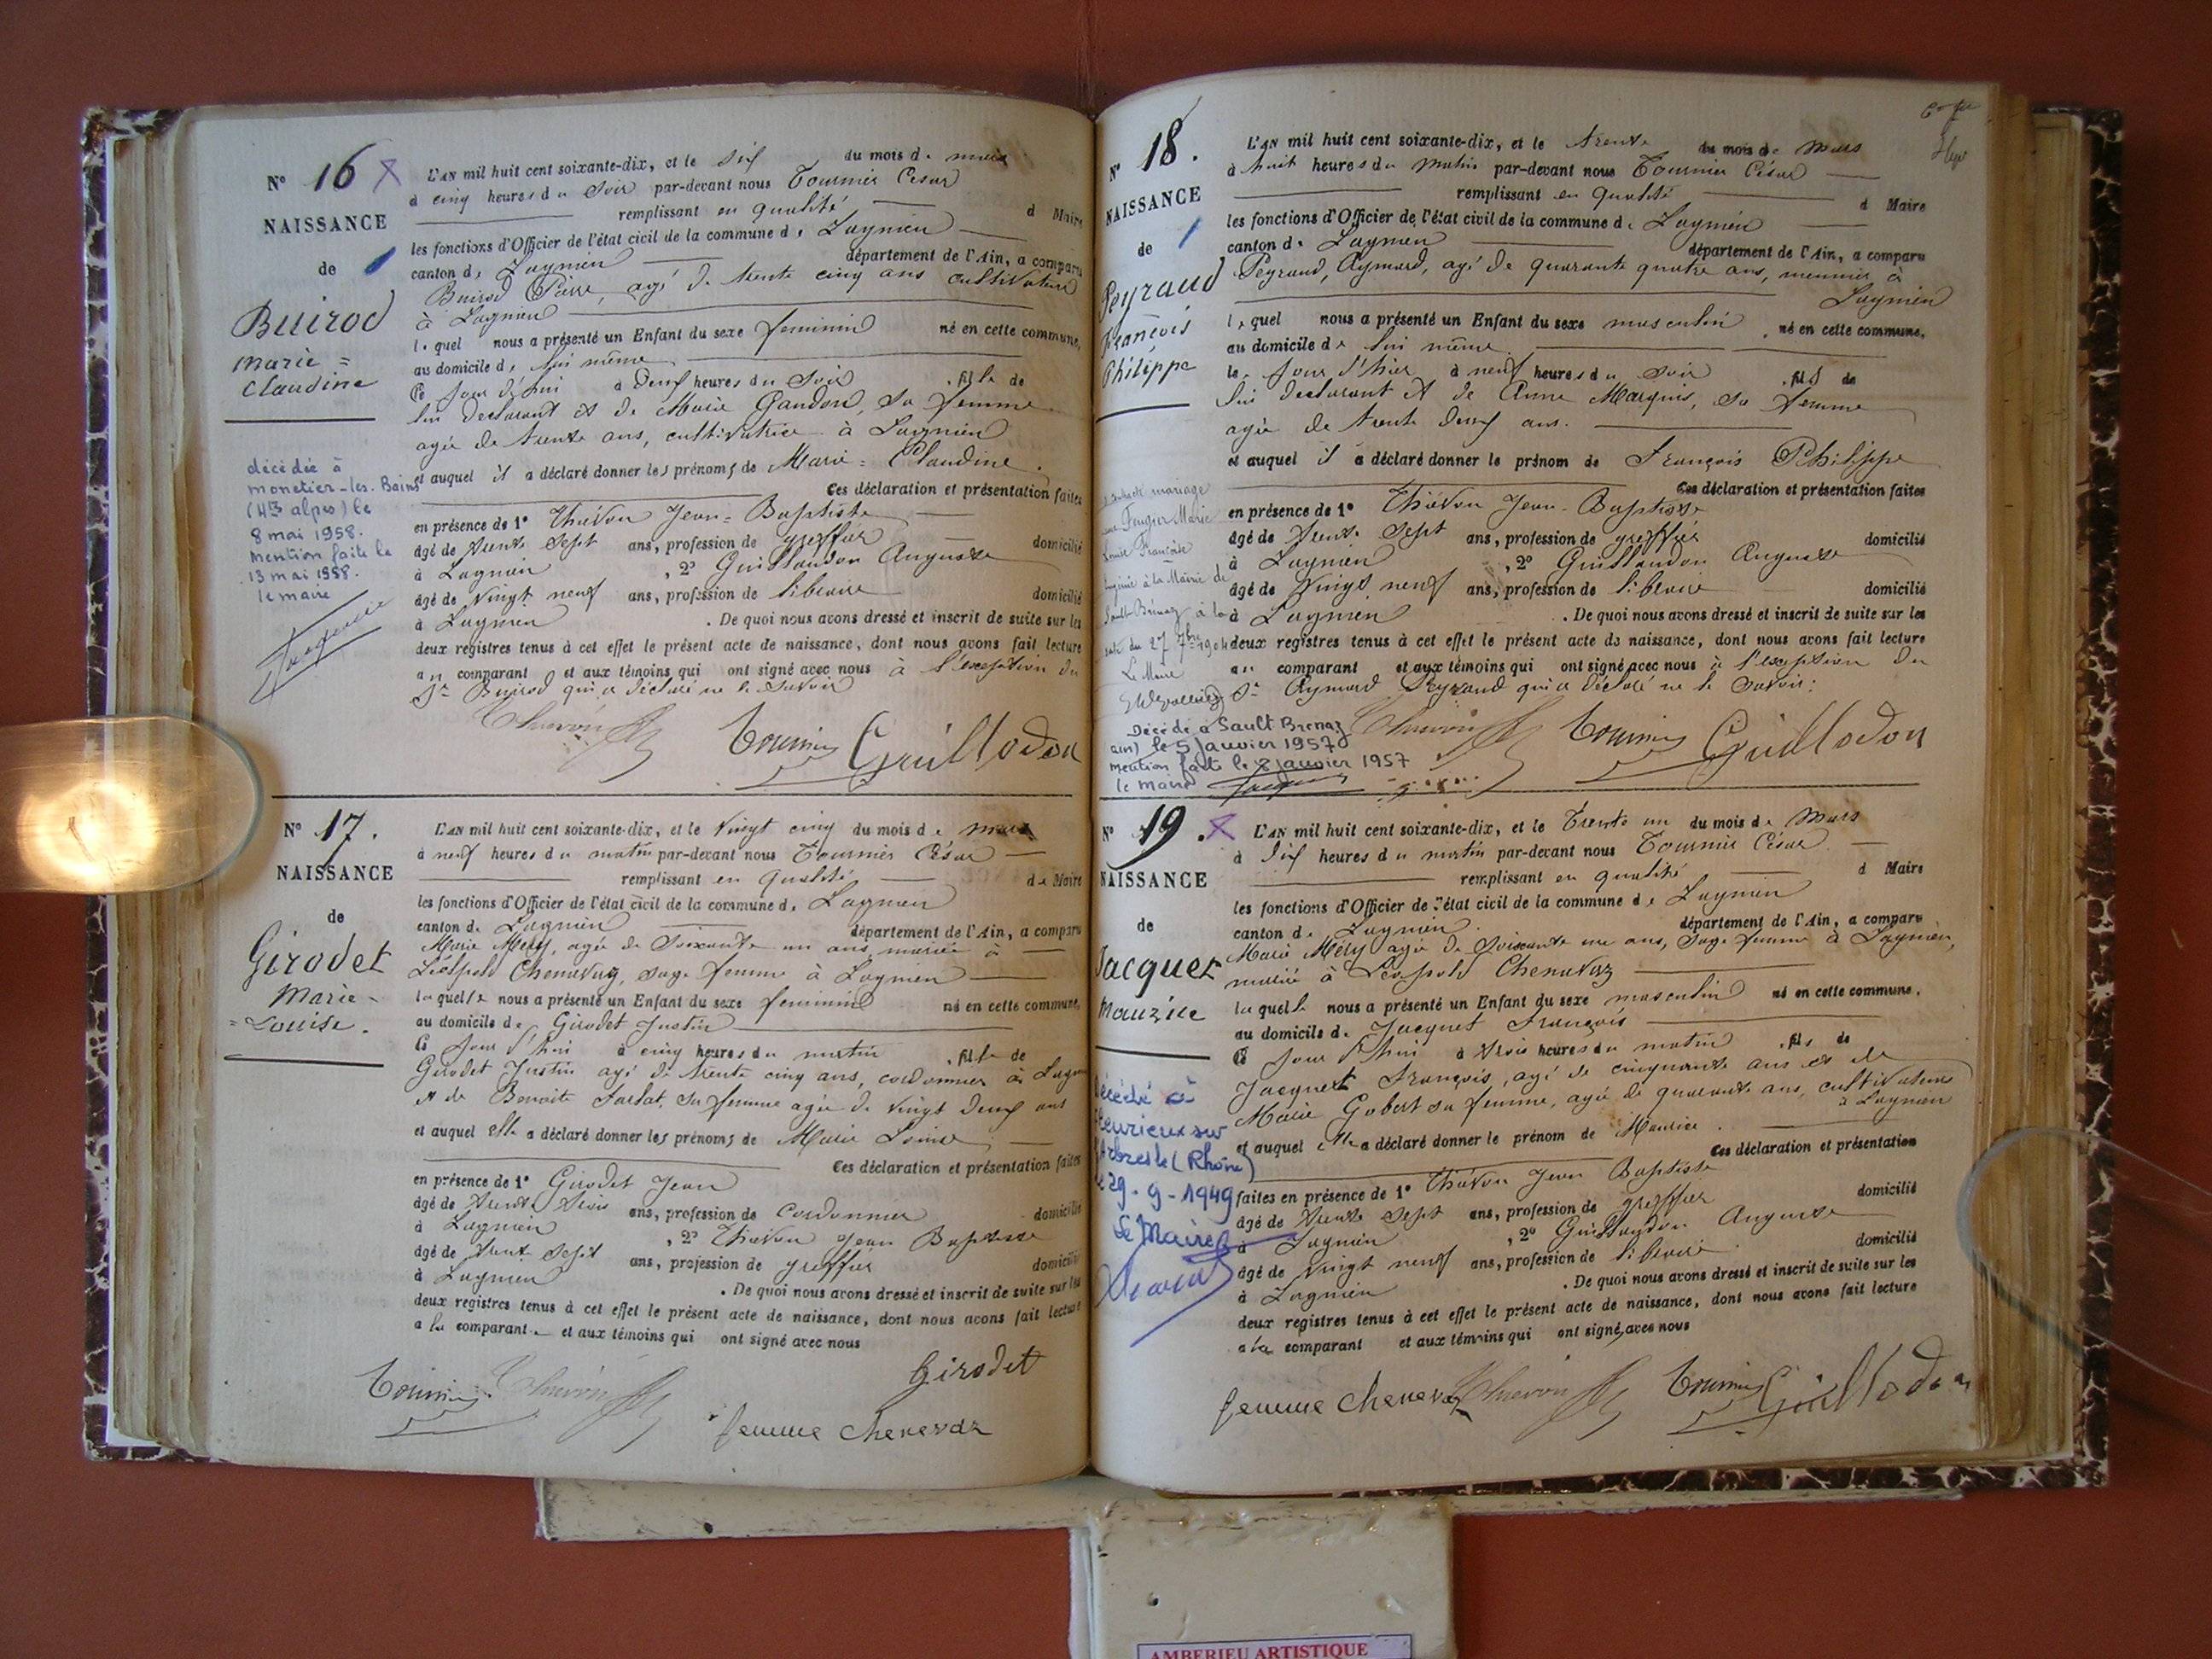 N° 16
NAISSANCE
de
Buirod
Marie =
Claudine
décédée à
monetier-les-Bains
(Htes alpes) le
8 mai 1958.
Mention faite le
13 mai 1958.
le maire
L'AN mil huit cent soixante-dix, et le dix du mois de mars
à cinq heures du soir par-devant nous Tournier César
remplissant en qualité de Maire
les fonctions d'Officier de l'état civil de la commune de Lagnieu
canton de Lagnieu département de l'Ain, a comparu
Buirod Pierre, agé de trente cinq ans cultivateur
à Lagnieu
lequel nous a présenté un Enfant du sexe feminin né en cette commune,
au domicile de lui même
Ce jour d'hui à deux heures du soir, fille de
lui declarant et de Marie Gandon, sa femme
agée de trente ans, cultivatrice à Lagnieu
et auquel il a déclaré donner les prénoms de Marie = Claudine.
Ces déclaration et présentation faites
en présence de 1° Thévon Jean = Baptiste
âgé de trente sept ans, profession de greffier domicilié
à Lagnieu, 2° Guillaudon Auguste
âgé de vingt neuf ans, profession de libraire domicilié
à Lagnieu. De quoi nous avons dressé et inscrit de suite sur les
deux registres tenus à cet effet le présent acte de naissance, dont nous avons fait lecture
au comparant et aux témoins qui ont signé avec nous à l'exception du
Sr Buirod qui a déclaré ne le savoir
Tournier Guillodon
N° 17.
NAISSANCE
de
Girodet
Marie =
= Louise.
L'AN mil huit cent soixante-dix, et le vingt cinq du mois de mars
à neuf heures du matin par-devant nous Tournier César
remplissant en qualité de Maire
les fonctions d'Officier de l'état civil de la commune de Lagnieu
canton de Lagnieu département de l'Ain, a comparu
Marie Mély, agée de soixante un ans mariée à
Léopold Chenavaz, sage femme à Lagnieu
laquelle nous a présenté un Enfant du sexe feminin né en cette commune,
au domicile de Girodet Justin
Ce jour d'hui à cinq heures du matin, fille de
Girodet Justin agé de trente cinq ans, cordonnier à Lagnieu
et de Benoite Sarlat, sa femme agée de vingt deux ans
et auquel elle a déclaré donner les prénoms de Marie Louise
Ces déclaration et présentation faites
en présence de 1° Girodet Jean
âgé de trente trois ans, profession de Cordonnier domicilié
à Lagnieu, 2° Thévon Jean Baptiste
âgé de trente sept ans, profession de greffier domicilié
à Lagnieu. De quoi nous avons dressé et inscrit de suite sur les
deux registres tenus à cet effet le présent acte de naissance, dont nous avons fait lecture
a la comparante et aux témoins qui ont signé avec nous
Girodet
Tournier
femme Chenevaz
N° 18.
NAISSANCE
de
Peyraud
François
Philippe
mariage
Marie
Louise Françoise
à la Mairie de
Sault Brénaz à la
date du 27 7bre 1904
Le Maire
Décédé à Sault Brenaz
(ain) le 5 janvier 1957
mention faite le 8 janvier 1957
le maire
L'AN mil huit cent soixante-dix, et le trente du mois de Mars
à huit heures du matin par-devant nous Tournier César
remplissant en qualité de Maire
les fonctions d'Officier de l'état civil de la commune de Lagnieu
canton de Lagnieu département de l'Ain, a comparu
Peyraud, Aymard, agé de quarante quatre ans, meunier à
Lagnieu
lequel nous a présenté un Enfant du sexe masculin, né en cette commune,
au domicile de lui même.
le jour d'hier à neuf heures du soir, fils de
lui declarant et de Anne Marquis, sa femme
agée de trente deux ans.
et auquel il a déclaré donner le prénom de François Philippe
Ces déclaration et présentation faites
en présence de 1° Thévon Jean-Baptiste
âgé de trente sept ans, profession de greffier domicilié
à Lagnieu, 2° Guillaudon Auguste
âgé de vingt neuf ans, profession de libraire domicilié
à Lagnieu. De quoi nous avons dressé et inscrit de suite sur les
deux registres tenus à cet effet le présent acte de naissance, dont nous avons fait lecture
au comparant et aux témoins qui ont signé avec nous à l'exception du
Sr Aymard Peyraud qui a déclaré ne le savoir.
Tournier Guillodon
N° 19.
NAISSANCE
de
Jacquet
Maurice
Décédé à
Fleurieux sur
l'Arbresle (Rhône)
le 29-9-1949
Le Maire
L'AN mil huit cent soixante-dix, et le trente un du mois de Mars
à dix heures du matin par-devant nous Tournier César
remplissant en qualité de Maire
les fonctions d'Officier de l'état civil de la commune de Lagnieu
canton de Lagnieu. département de l'Ain, a comparu
Marie Mély agée de soixante un ans, sage femme à Lagnieu,
mariée à Léopold Chenavaz
laquelle nous a présenté un Enfant du sexe masculin né en cette commune,
au domicile de Jacquet François
Ce jour d'hui à trois heures du matin, fils de
Jacquet François, agé de cinquante ans et de
Marie Gobert sa femme, agée de quarante ans, cultivateurs
à Lagnieu
et auquel elle a déclaré donner le prénom de Maurice.
Ces déclaration et présentation
faites en présence de 1° Thévon Jean Baptiste
âgé de trente sept ans, profession de greffier domicilié
à Lagnieu, 2° Guillaudon Auguste
âgé de vingt neuf ans, profession de libraire domicilié
à Lagnieu. De quoi nous avons dressé et inscrit de suite sur les
deux registres tenus à cet effet le présent acte de naissance, dont nous avons fait lecture
a la comparant et aux témoins qui ont signé avec nous
femme Chenevaz Tournier Guillodon
AMBERIEU ARTISTIQUE